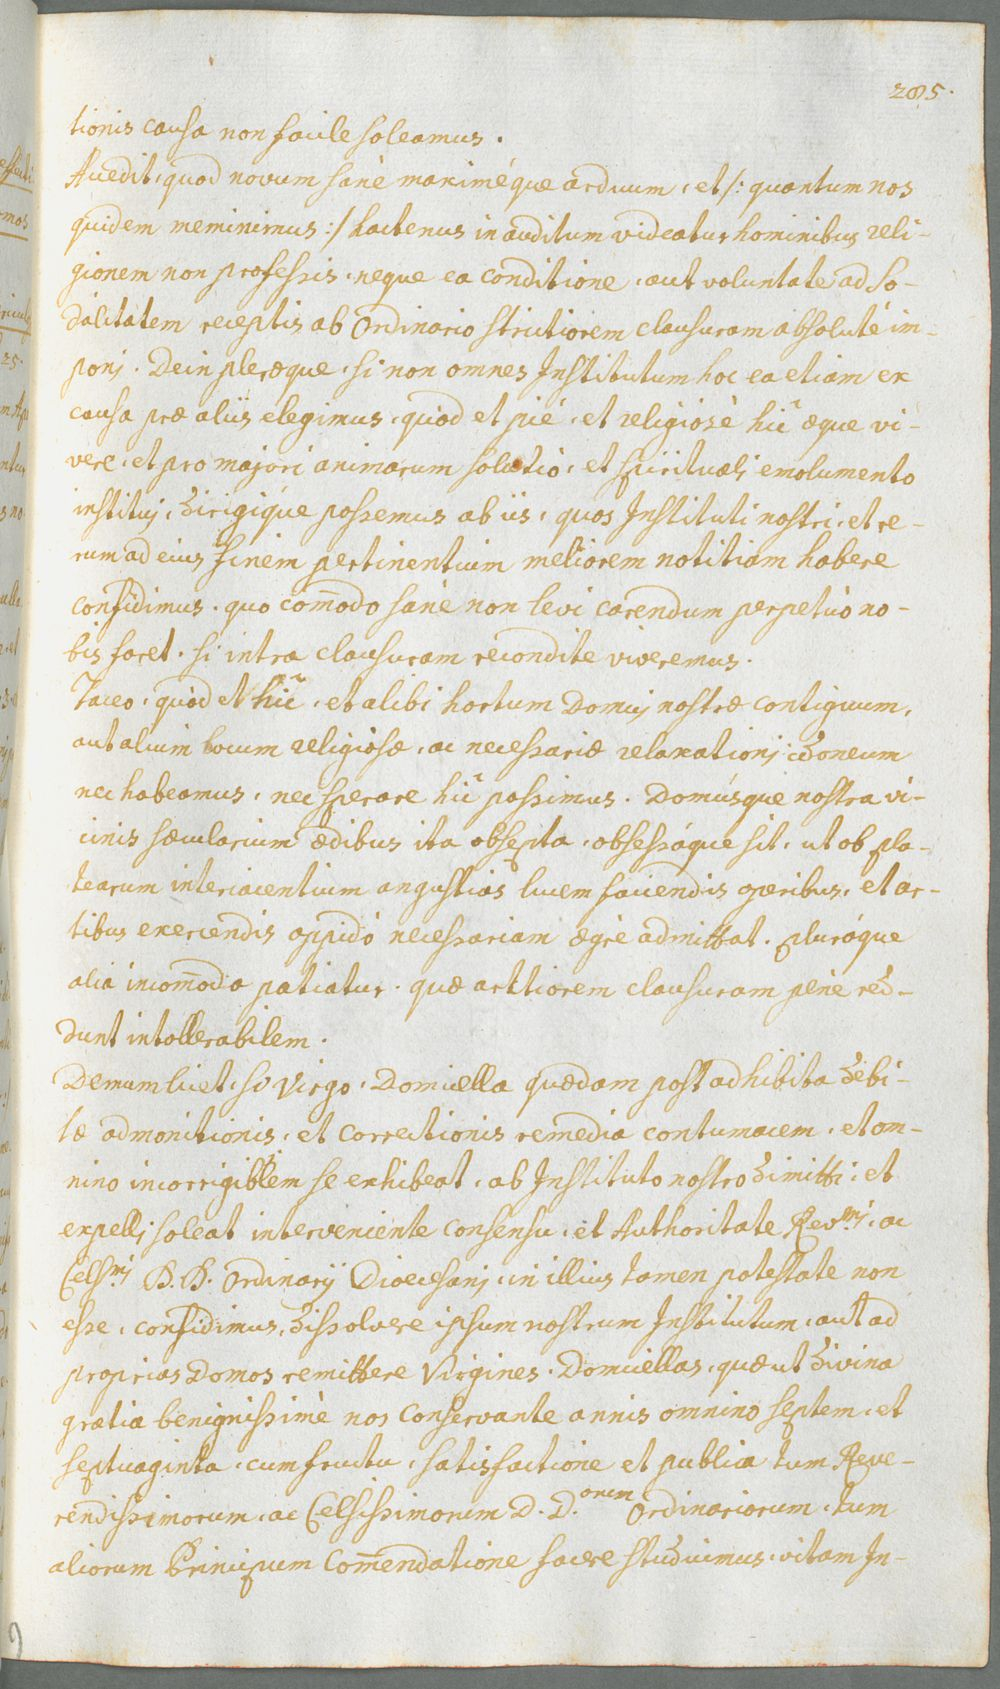 285.
tionis causa non facile soleamus.
Accedit, quod novum sanè maximéque arduum, et /: quantum nos
quidem meminimus :/ hactenus inauditum videatur hominibus reli-
gionem non professis, neque ea conditione, aut voluntate ad So-
dalitatem receptis ab Ordinario strictiorem clausuram absoluté im-
ponj. Dein pleræque, si non omnes Institutum hoc ea etiam ex
causa præ aliis elegimus, quòd et pié, et religiosè hic æque vi-
vere, et pro majori animarum solatiò, et spiritualj emolumento
instituj, dirigique possemus ab iis, quos Instituti nostri, et re-
rum ad eius finem pertinentium meliorem notitiam habere
confidimus. quo com̄odo sanè non levi carendum perpetuò no-
bis foret. si intra clausuram recondite viveremus.
Taceo, quòd et hic, et alibi hortum Domuj nostræ contiguum,
aut alium locum religiosæ, ac necessariæ relaxationj idoneum
nec habeamus, nec sperare hic possimus. Domúsque nostra vi-
cinis sæcularium ædibus ita obsepta, obsessáque sit, ut ob pla-
tearum interiacentium angustias lucem faciendis operibus, et ar-
tibus exercendis oppidó necessariam ægrè admittat. pluráque
alia incom̄oda patiatur. quæ arctiorem clausuram penè red-
dunt intollerabilem.
Demum licet, si Virgo, Domicella quædam post adhibita debi-
tæ admonitionis, et correctionis remedia contumacem, et om-
nino incorrigiblem se exhibeat, ab Instituto nostro dimitti, et
expellj soleat interveniente consensu, et Authoritate Revmi, ac
Celsmi D. D. Ordinarij Dioecesanj, in illius tamen potestate non
esse, confidimus, dissolvere ipsum nostrum Institutum, aut ad
proprias Domos remittere Virgines, Domicellas, quæ ut divina
gratia benignissimè nos conservante annis omnino septem, et
septuaginta, cum fructu, satisfactione et publica tum Reve-
rendissimorum, ac Celsissimorum D. D.orum Ordinariorum, tum
aliorum Principum Com̄endatione facere studuimus, vitam In-